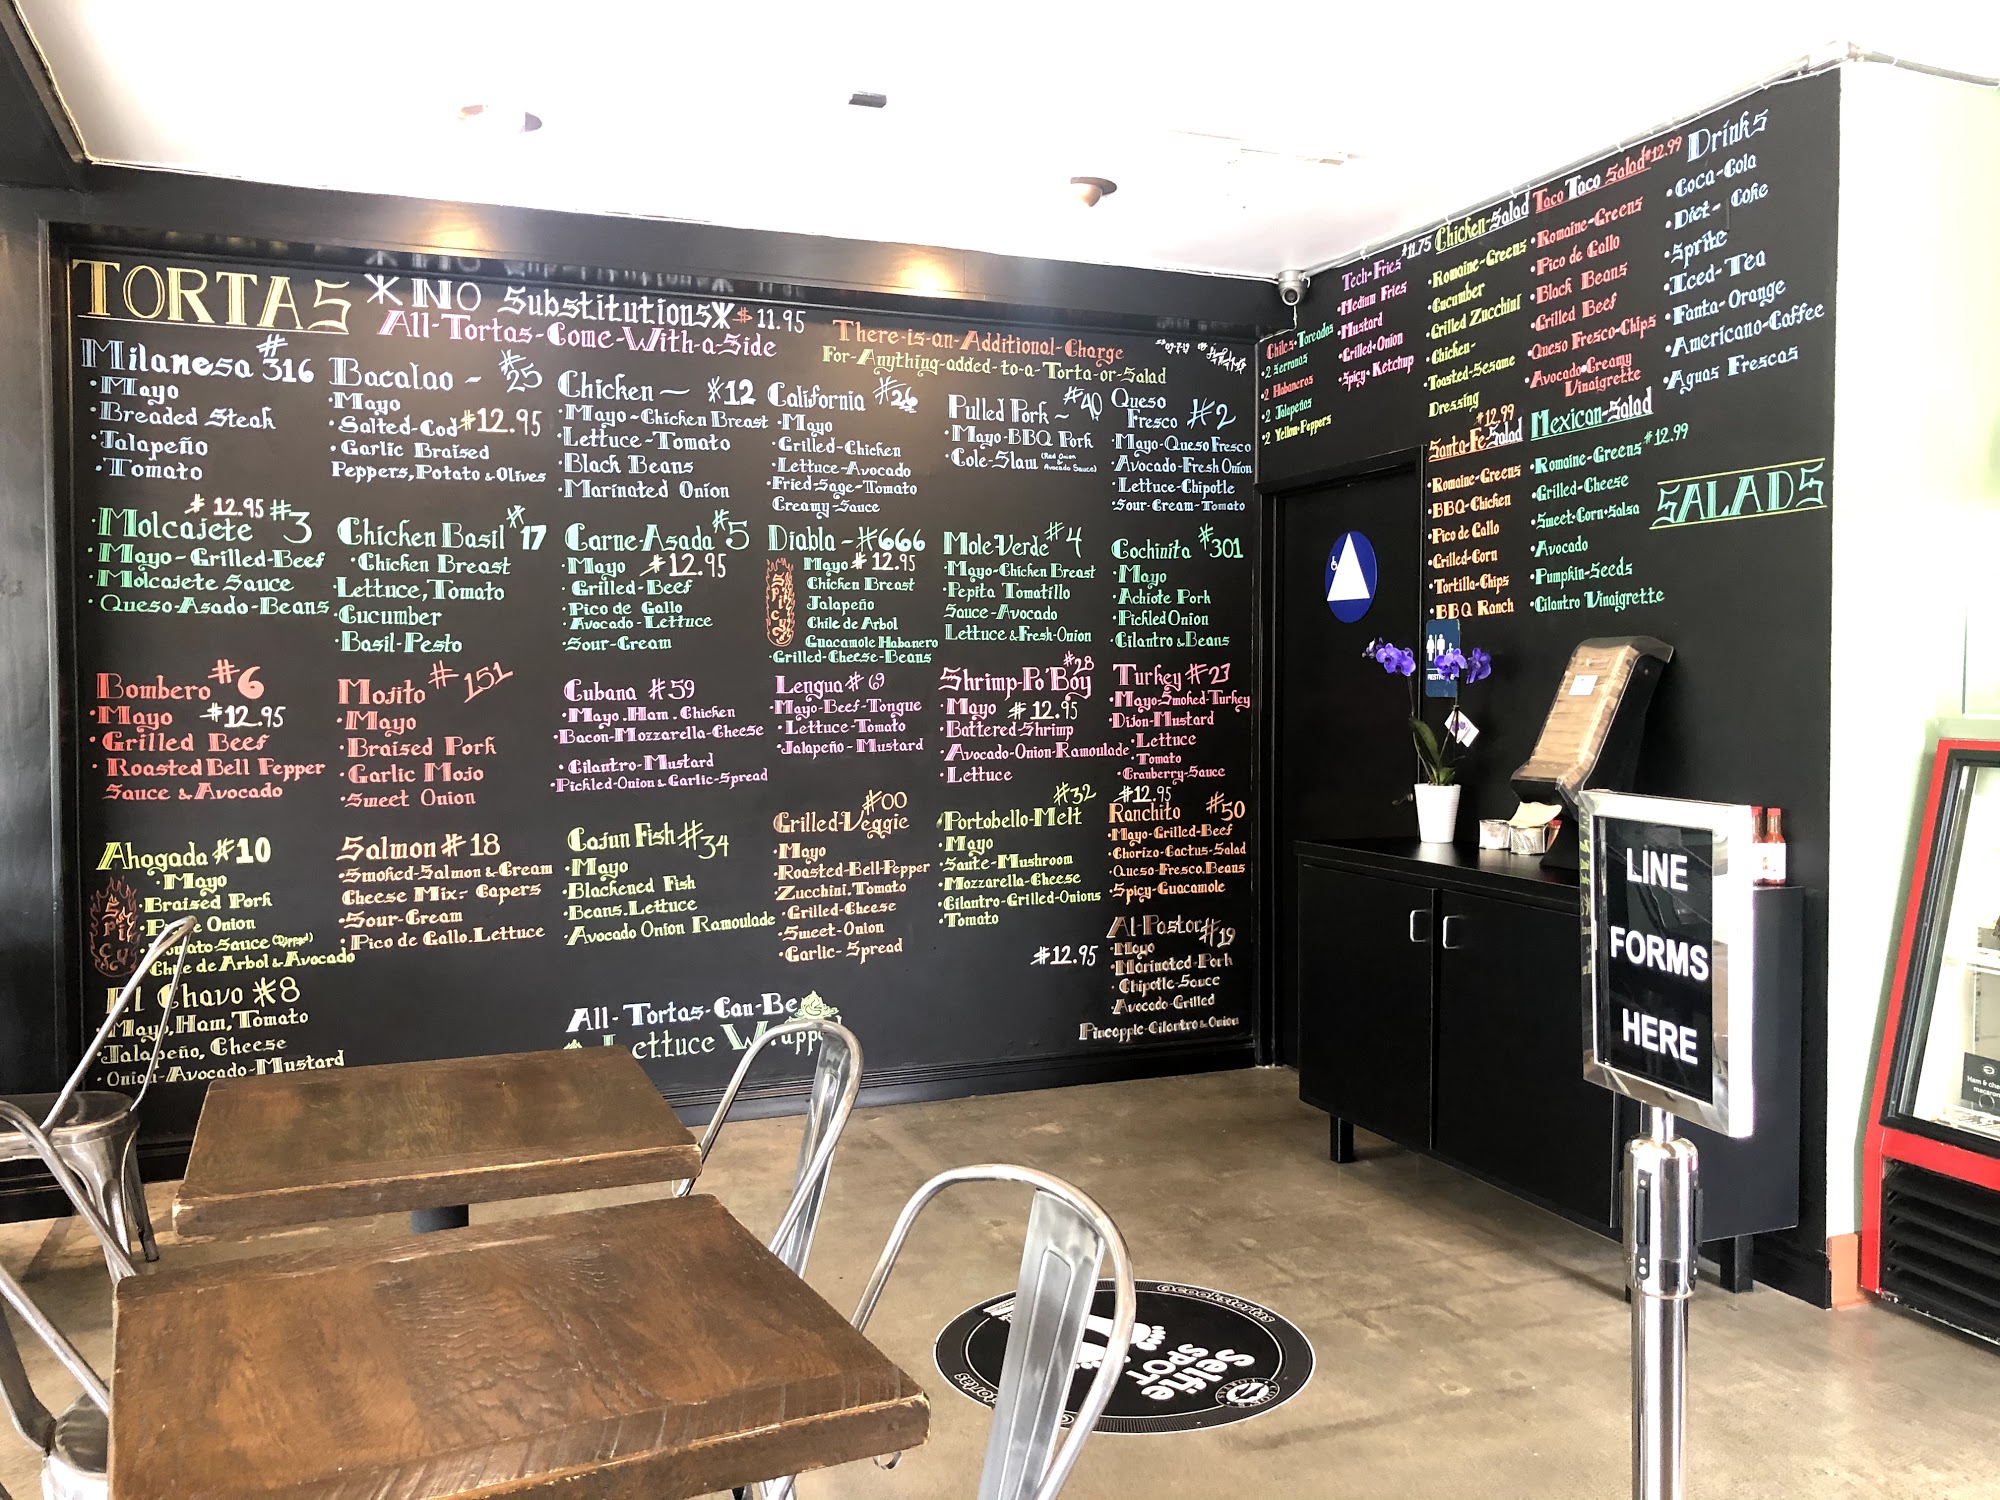 TORTAS
* NO Substitutions * $11.95
All-Tortas-Come-With-a-Side
There-is-an-Additional-Charge
For-Anything-added-to-a-Torta-or-Salad
Milanesa #316
• Mayo
• Breaded Steak
• Jalapeño
• Tomato
Bacalao - #25
• Mayo
• Salted-Cod #12.95
• Garlic Braised
Peppers, Potato & Olives
Chicken - #12
• Mayo-Chicken Breast
• Lettuce-Tomato
• Black Beans
• Marinated Onion
California #26
• Mayo
• Grilled-Chicken
• Lettuce-Avocado
• Fried-Sage-Tomato
Creamy-Sauce
Pulled Pork - #40
• Mayo-BBQ Pork
• Cole-Slaw (Red Onion & Avocado Sauce)
Queso
Fresco #2
• Mayo-Queso Fresco
• Avocado-Fresh Onion
• Lettuce-Chipotle
• Sour-Cream-Tomato
#12.95
Molcajete #3
• Mayo-Grilled-Beef
• Molcajete Sauce
• Queso-Asado-Beans
Chicken Basil #17
• Chicken Breast
• Lettuce, Tomato
• Cucumber
• Basil-Pesto
Carne-Asada #5
• Mayo #12.95
• Grilled-Beef
• Pico de Gallo
• Avocado-Lettuce
• Sour-Cream
Diabla-#666
Spicy
Mayo #12.95
Chicken Breast
Jalapeño
Chile de Arbol
Guacamole Habanero
• Grilled-Cheese-Beans
Mole-Verde #4
• Mayo-Chicken Breast
• Pepita Tomatillo
Sauce-Avocado
Lettuce & Fresh-Onion
Cochinita #301
• Mayo
• Achiote Pork
• Pickled Onion
• Cilantro & Beans
Bombero #6
• Mayo #12.95
• Grilled Beef
• Roasted Bell Pepper
Sauce & Avocado
Mojito #151
• Mayo
• Braised Pork
• Garlic Mojo
• Sweet Onion
Cubana #59
• Mayo.Ham.Chicken
• Bacon-Mozzarella-Cheese
• Cilantro-Mustard
• Pickled-Onion & Garlic-Spread
Lengua #69
• Mayo-Beef-Tongue
• Lettuce-Tomato
• Jalapeño-Mustard
Shrimp-Po'Boy #28
• Mayo #12.95
Battered-Shrimp
• Avocado-Onion-Ramoulade
• Lettuce
Turkey #27
• Mayo-Smoked-Turkey
Dijon-Mustard
• Lettuce
• Tomato
• Cranberry-Sauce
Ahogada #10
Spicy
• Mayo
• Braised Pork
Onion
Tomato-Sauce (Dipped)
Chile de Arbol & Avocado
Salmon #18
• Smoked-Salmon & Cream
Cheese Mix.- Capers
• Sour-Cream
• Pico de Gallo.Lettuce
Cajun Fish #34
• Mayo
• Blackened Fish
• Beans.Lettuce
• Avocado Onion Ramoulade
Grilled-Veggie #00
• Mayo
• Roasted-Bell-Pepper
Zucchini.Tomato
• Grilled-Cheese
• Sweet-Onion
• Garlic-Spread
Portobello-Melt #32
• Mayo
• Saute-Mushroom
• Mozzarella-Cheese
• Cilantro-Grilled-Onions
• Tomato
#12.95
Ranchito #50
• Mayo-Grilled-Beef
• Chorizo-Cactus-Salad
• Queso-Fresco.Beans
• Spicy-Guacamole
El Chavo #8
• Mayo, Ham, Tomato
• Jalapeño, Cheese
• Onion-Avocado-Mustard
All-Tortas-Can-Be
Lettuce Wrapped
#12.95
Al-Pastor #19
• Mayo
• Marinated-Pork
• Chipotle-Sauce
Avocado-Grilled
Pineapple-Cilantro & Onion
Chiles-Toreados
• 2 Serranos
• 2 Habaneros
• 2 Jalapeños
• 2 Yellow-Peppers
Tech-Fries #11.75
• Medium Fries
• Mustard
• Grilled-Onion
• Spicy-Ketchup
Chicken-Salad
• Romaine-Greens
• Cucumber
• Grilled Zucchini
• Chicken-
Toasted-Sesame
Dressing
Taco Taco Salad #12.99
• Romaine-Greens
• Pico de Gallo
• Black Beans
• Grilled Beef
Queso Fresco-Chips
• Avocado-Creamy
Vinaigrette
Drinks
• Coca-Cola
• Diet-Coke
• Sprite
• Iced-Tea
• Fanta-Orange
• Americano-Coffee
• Aguas Frescas
#12.99
Santa-Fe-Salad
• Romaine-Greens
• BBQ-Chicken
• Pico de Gallo
• Grilled-Corn
• Tortilla-Chips
• BBQ Ranch
Mexican-Salad
• Romaine-Greens #12.99
• Grilled-Cheese
• Sweet-Corn-Salsa
• Avocado
• Pumpkin-Seeds
• Cilantro Vinaigrette
SALADS
LINE
FORMS
HERE
Selfie
SPOT
@cookstortas